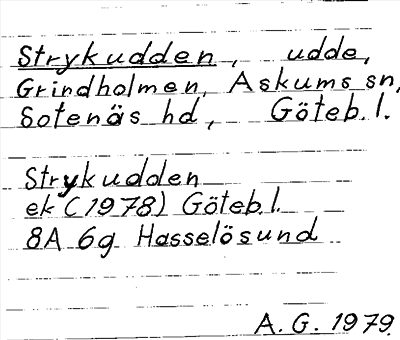 Strykudden, udde,
Grindholmen, Askums sn,
Sotenäs hd, Göteb. l.
Strykudden
ek (1978) Göteb. l.
8A 6g Hasselösund
A. G. 1979.